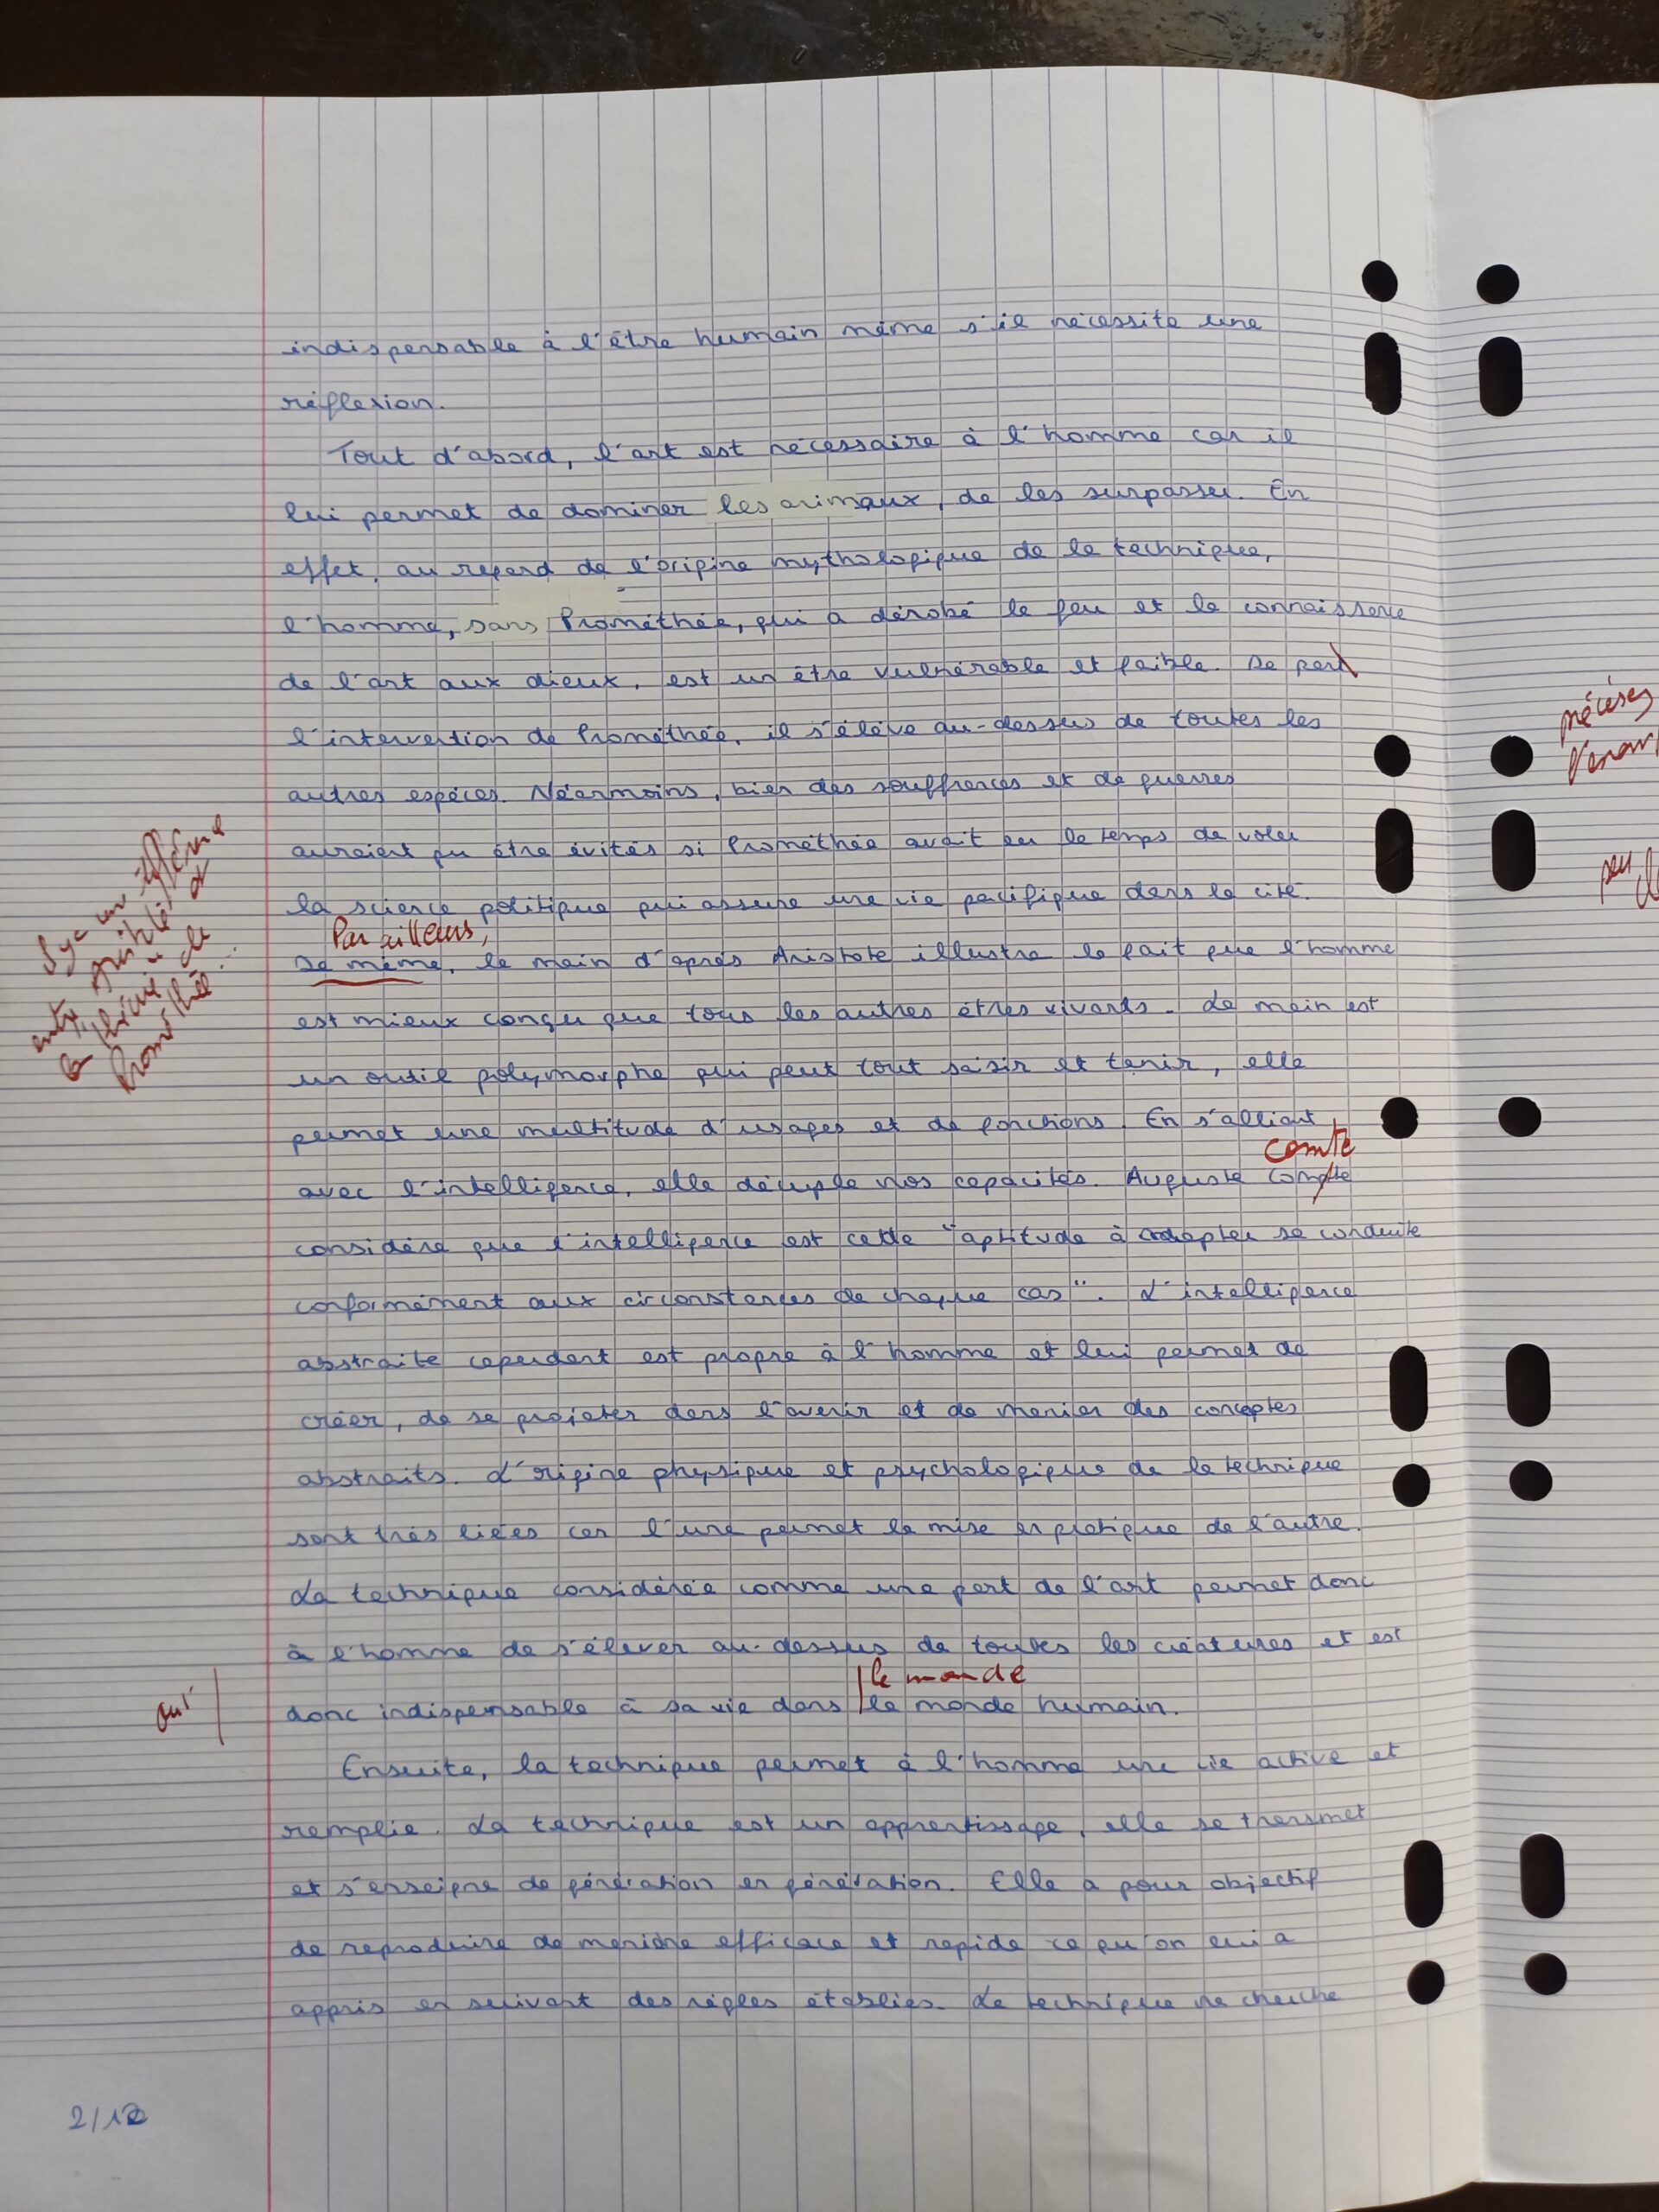 indispensable à l'être humain même s'il nécessite une
réflexion.
Tout d'abord, l'art est nécessaire à l'homme car il
lui permet de dominer les animaux, de les surpasser. En
effet, au regard de l'origine mythologique de la technique,
l'homme, sans Prométhée, qui a dérobé le feu et la connaissance
de l'art aux dieux, est un être vulnérable et faible. De part
l'intervention de Prométhée, il s'élève au-dessus de toutes les
autres espèces. Néanmoins, bien des souffrances et de guerres
auraient pu être évités si Prométhée avait eu le temps de voler
la science politique qui assure une vie pacifique dans la cité.
Par ailleurs,
De même, la main d'après Aristote illustre le fait que l'homme
est mieux conçu que tous les autres êtres vivants. La main est
un outil polymorphe qui peut tout saisir et tenir, elle
permet une multitude d'usages et de fonctions. En s'alliant
Comte
avec l'intelligence, elle décuple nos capacités. Auguste Compte
considère que l'intelligence est cette "aptitude à adapter sa conduite
conformément aux circonstances de chaque cas". L'intelligence
abstraite cependant est propre à l'homme et lui permet de
créer, de se projeter dans l'avenir et de manier des concepts
abstraits. L'origine physique et psychologique de la technique
sont très liées car l'une permet la mise en pratique de l'autre.
La technique considérée comme une part de l'art permet donc
à l'homme de s'élever au-dessus de toutes les créatures et est
le monde
donc indispensable à sa vie dans le monde humain.
oui
Ensuite, la technique permet à l'homme une vie active et
remplie. La technique est un apprentissage, elle se transmet
et s'enseigne de génération en génération. Elle a pour objectif
de reproduire de manière efficace et rapide ce qu'on lui a
appris en suivant des règles établies. La technique ne cherche
il y a un
entre
la
Prométhée...
peu
2/12